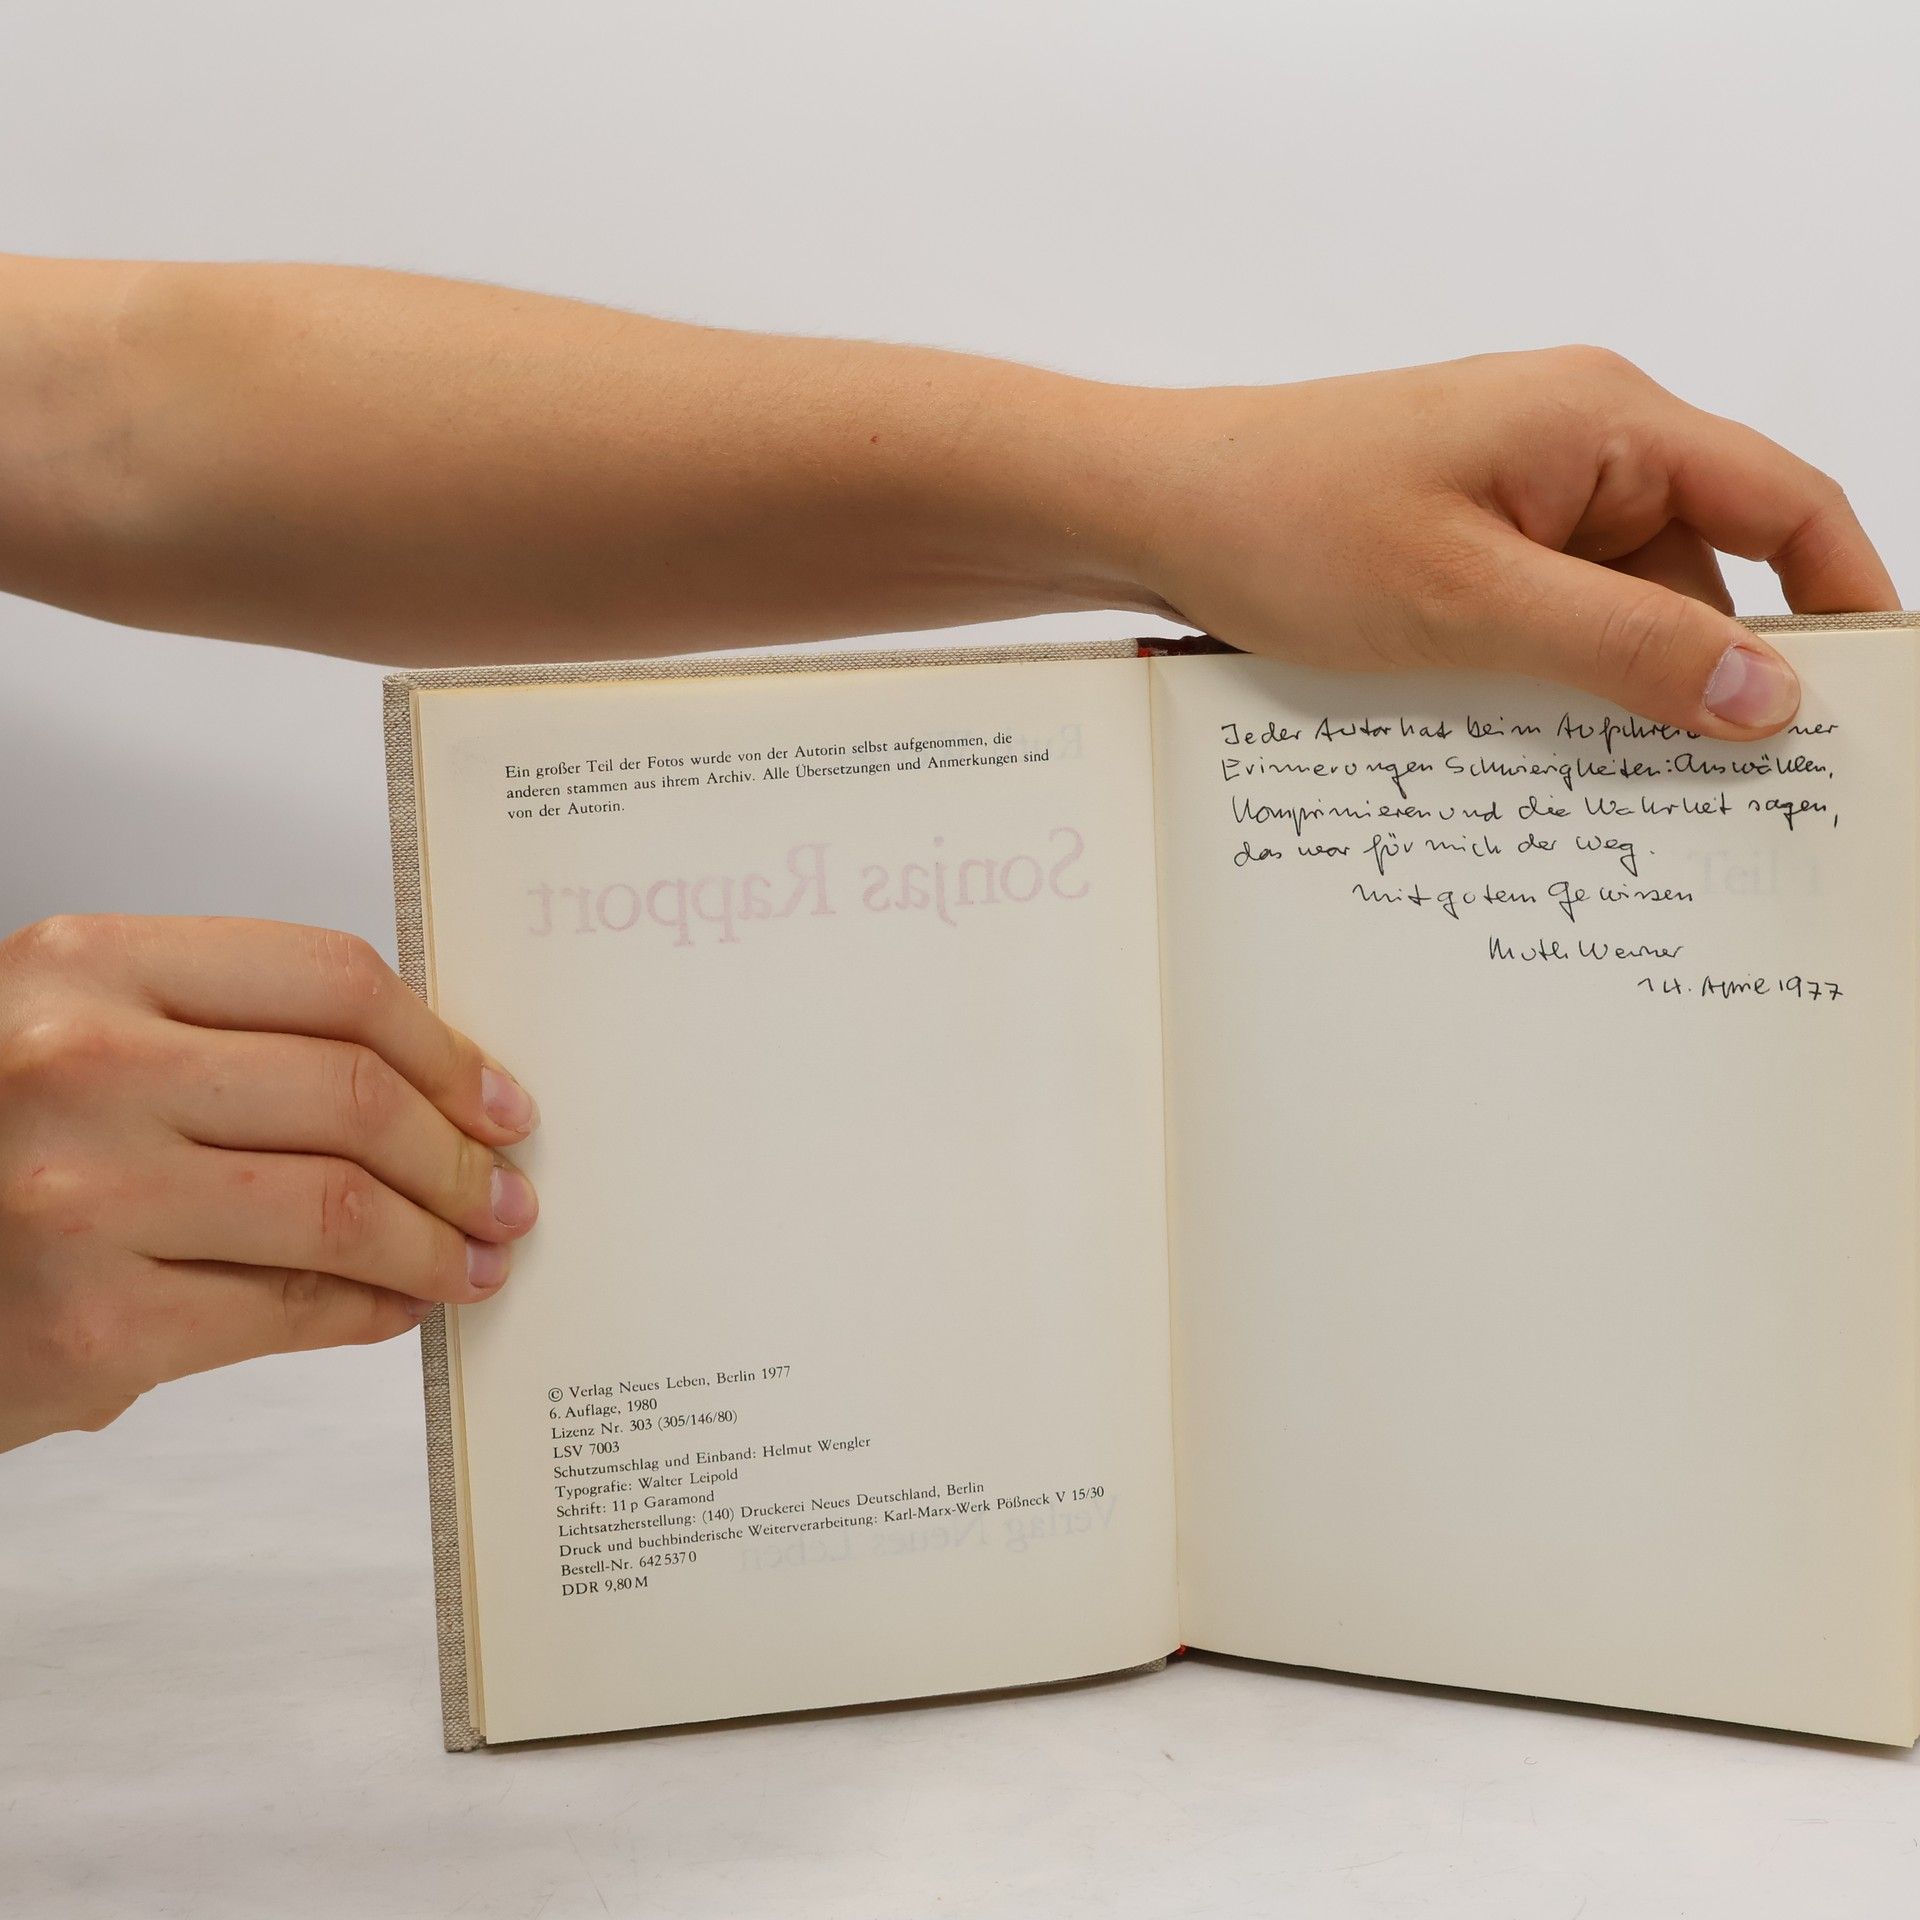 Ein großer Teil der Fotos wurde von der Autorin selbst aufgenommen, die
anderen stammen aus ihrem Archiv. Alle Übersetzungen und Anmerkungen sind
von der Autorin.
Sonjas Rapport
© Verlag Neues Leben, Berlin 1977
6. Auflage, 1980
Lizenz Nr. 303 (305/146/80)
LSV 7003
Schutzumschlag und Einband: Helmut Wengler
Typografie: Walter Leipold
Schrift: 11 p Garamond
Lichtsatzherstellung: (140) Druckerei Neues Deutschland, Berlin
Druck und buchbinderische Weiterverarbeitung: Karl-Marx-Werk Pößneck V 15/30
Bestell-Nr. 642 537 0
DDR 9,80 M
Verlag Neues Leben
Jeder Autor hat beim
Erinnerungen Schwierigkeiten: Auswählen,
Komprimieren und die Wahrheit sagen,
das war für mich der Weg.
Mit gutem Gewissen
Ruth Werner
14. April 1977
Teil